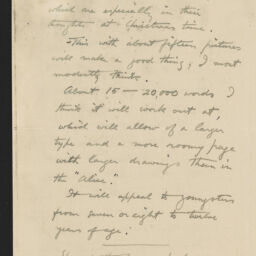 which are especially in their
thoughts at Christmas time.
This with about fifteen pictures
will make a good thing, I most
modestly think.
About 15 — 20,000 words I
think it will work out at,
which will allow of a larger
type and a more roomy page
with larger drawings than in
the "Alice".
It will appeal to youngsters
from seven or eight to twelve
years of age.